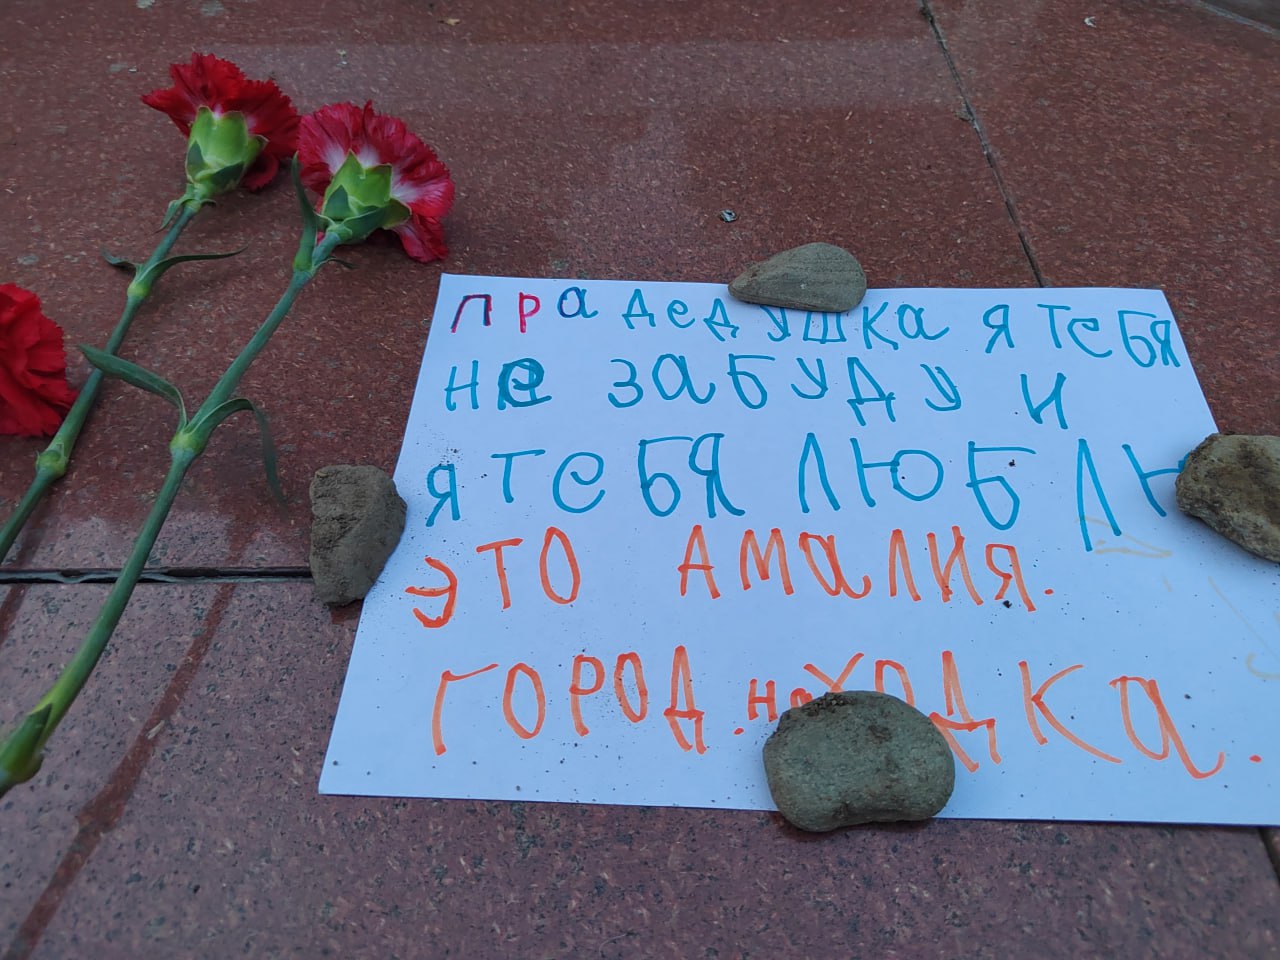 прадедушка я тебя
не забуду и
я тебя люблю
это Амалия.
город. находка.